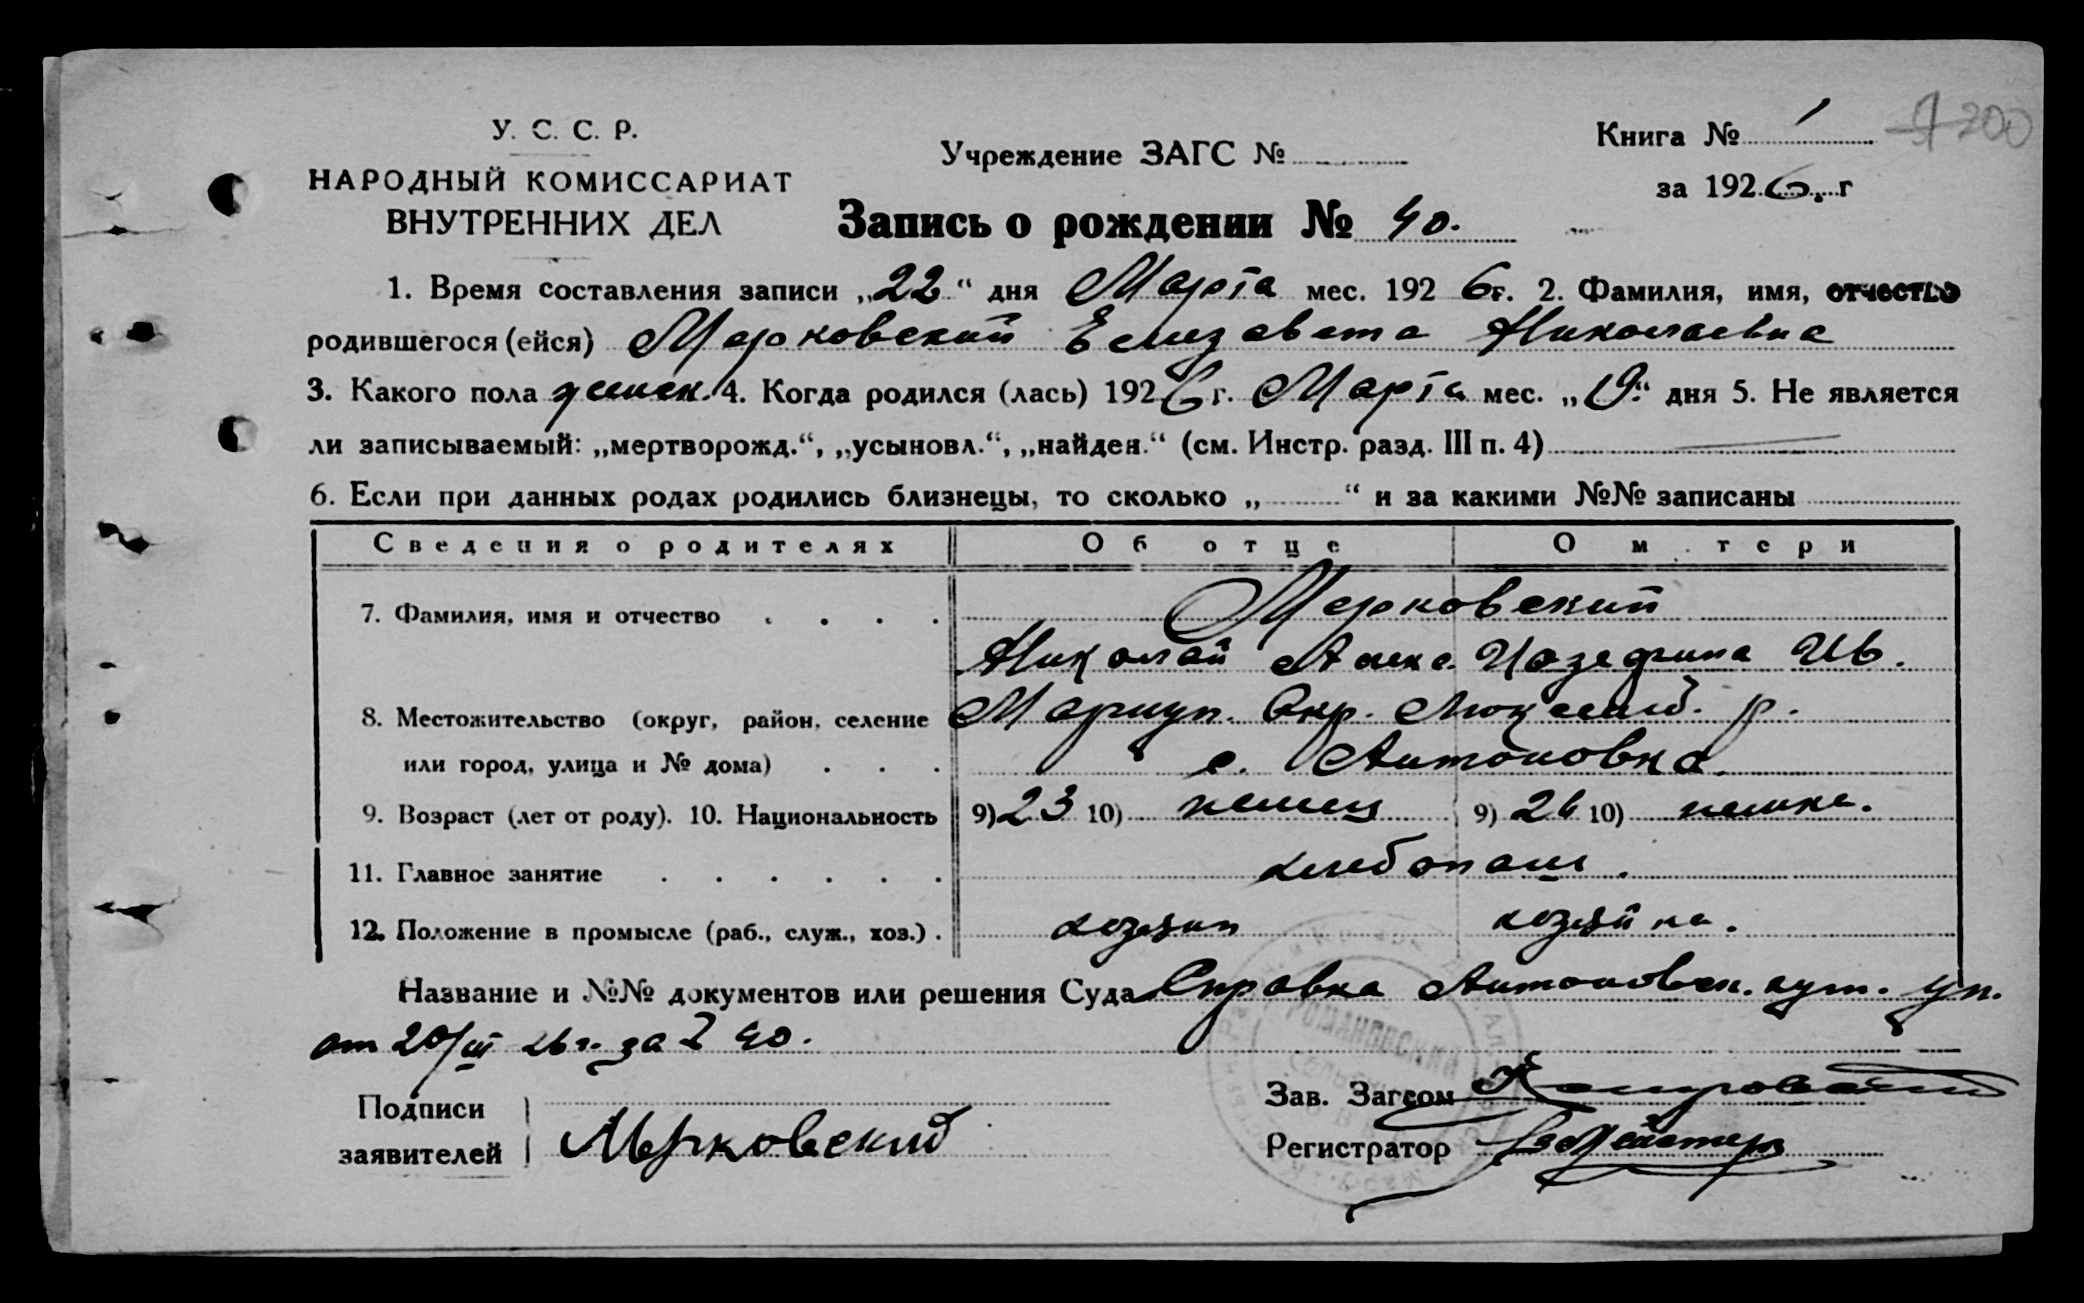 У. С. С. Р.
НАРОДНЫЙ КОМИССАРИАТ
ВНУТРЕННИХ ДЕЛ
Учреждение ЗАГС №
Книга № 1
200
за 1926 г
Запись о рождении № 40.
1. Время составления записи „22“ дня Марта мес. 1926 г. 2. Фамилия, имя, отчество
родившегося (ейся) Мерковский Елизавета Николаевна
3. Какого пола женск. 4. Когда родился (лась) 1926 г. Марта мес. „19“ дня 5. Не является
ли записываемый: „мертворожд.“, „усыновл.“, „найден.“ (см. Инстр. разд. III п. 4)
6. Если при данных родах родились близнецы, то сколько „ “ и за какими №№ записаны
Сведения о родителях Об отце О м тери
7. Фамилия, имя и отчество Мерковский
Николай Алекс. Иозефина Ив.
8. Местожительство (округ, район, селение Мариуп. Окр. р.
или город, улица и № дома) с. Антоновка.
9. Возраст (лет от роду). 10. Национальность 9) 23 10) немец 9) 26 10) немка.
11. Главное занятие хлебопаш.
12. Положение в промысле (раб., служ., хоз.) хозяин хозяйка.
Название и №№ документов или решения Суда Справка Антоновск. уп.
от 20/III 26 г. за № 40.
РОМАНОВСКИЙ
Подписи
заявителей Мерковский
Зав. Загсом
Регистратор